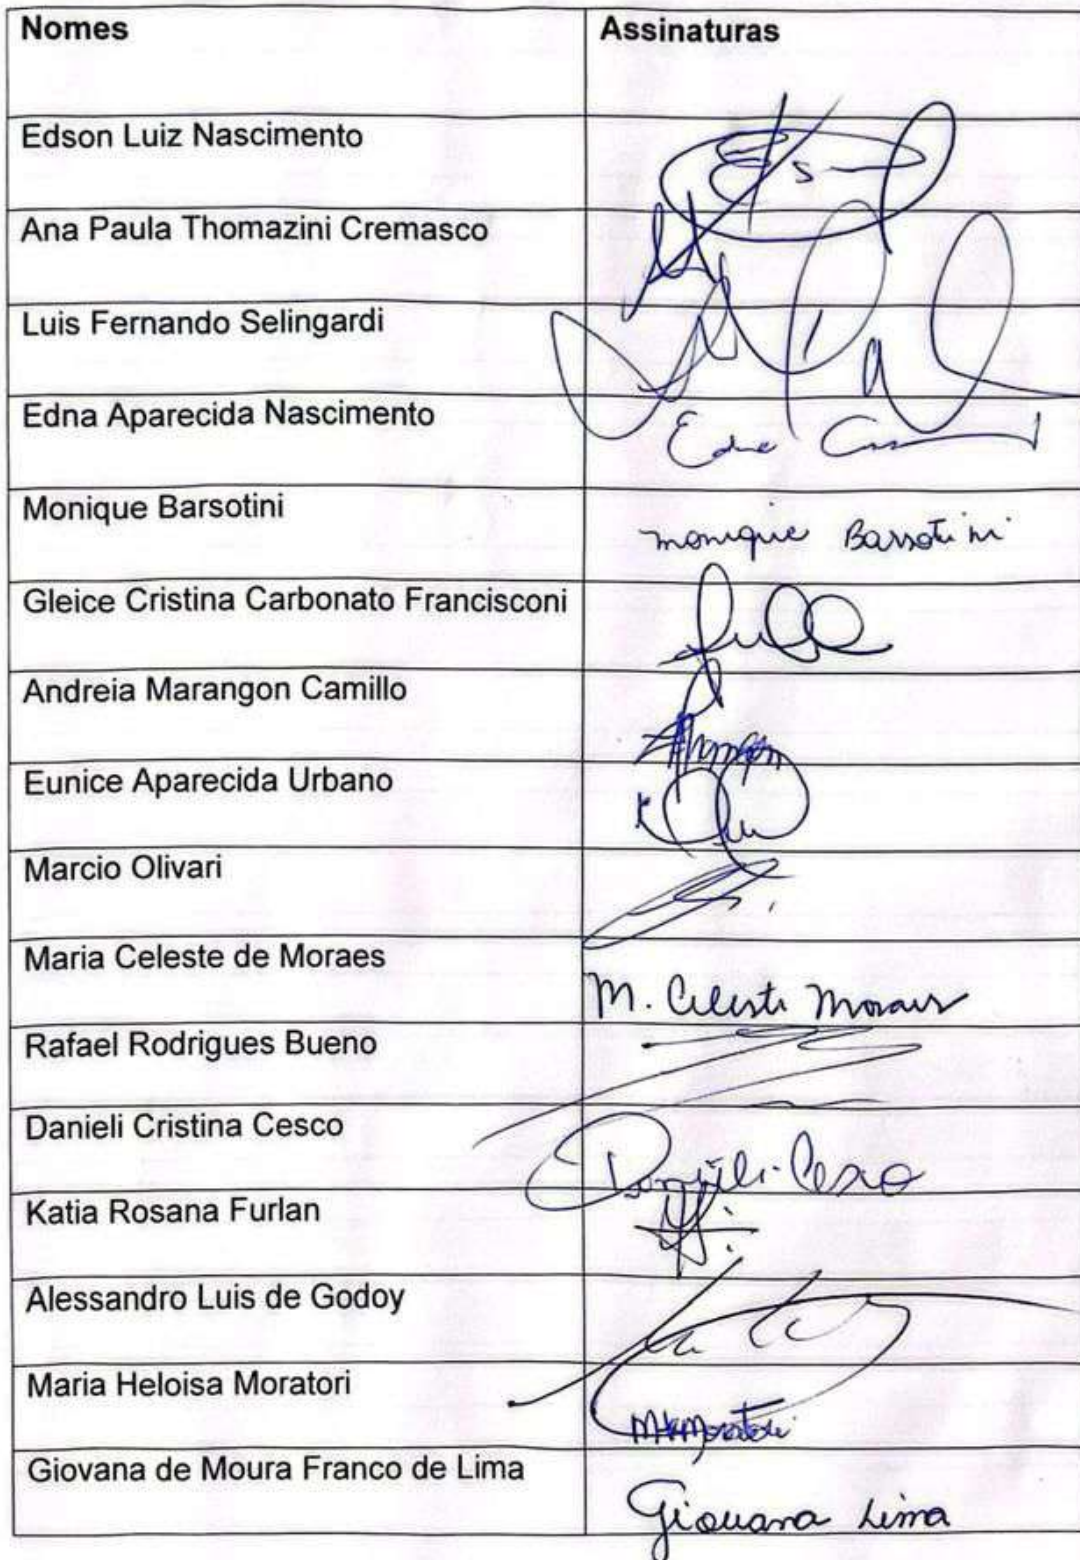 Nomes Assinaturas
Edson Luiz Nascimento
Ana Paula Thomazini Cremasco
Luis Fernando Selingardi
Edna Aparecida Nascimento
Monique Barsotini monique Barsotini
Gleice Cristina Carbonato Francisconi
Andreia Marangon Camillo
Eunice Aparecida Urbano
Marcio Olivari
Maria Celeste de Moraes M. Celeste Moraes
Rafael Rodrigues Bueno
Danieli Cristina Cesco Danieli Cesco
Katia Rosana Furlan
Alessandro Luis de Godoy
Maria Heloisa Moratori MHMoratori
Giovana de Moura Franco de Lima Giovana Lima